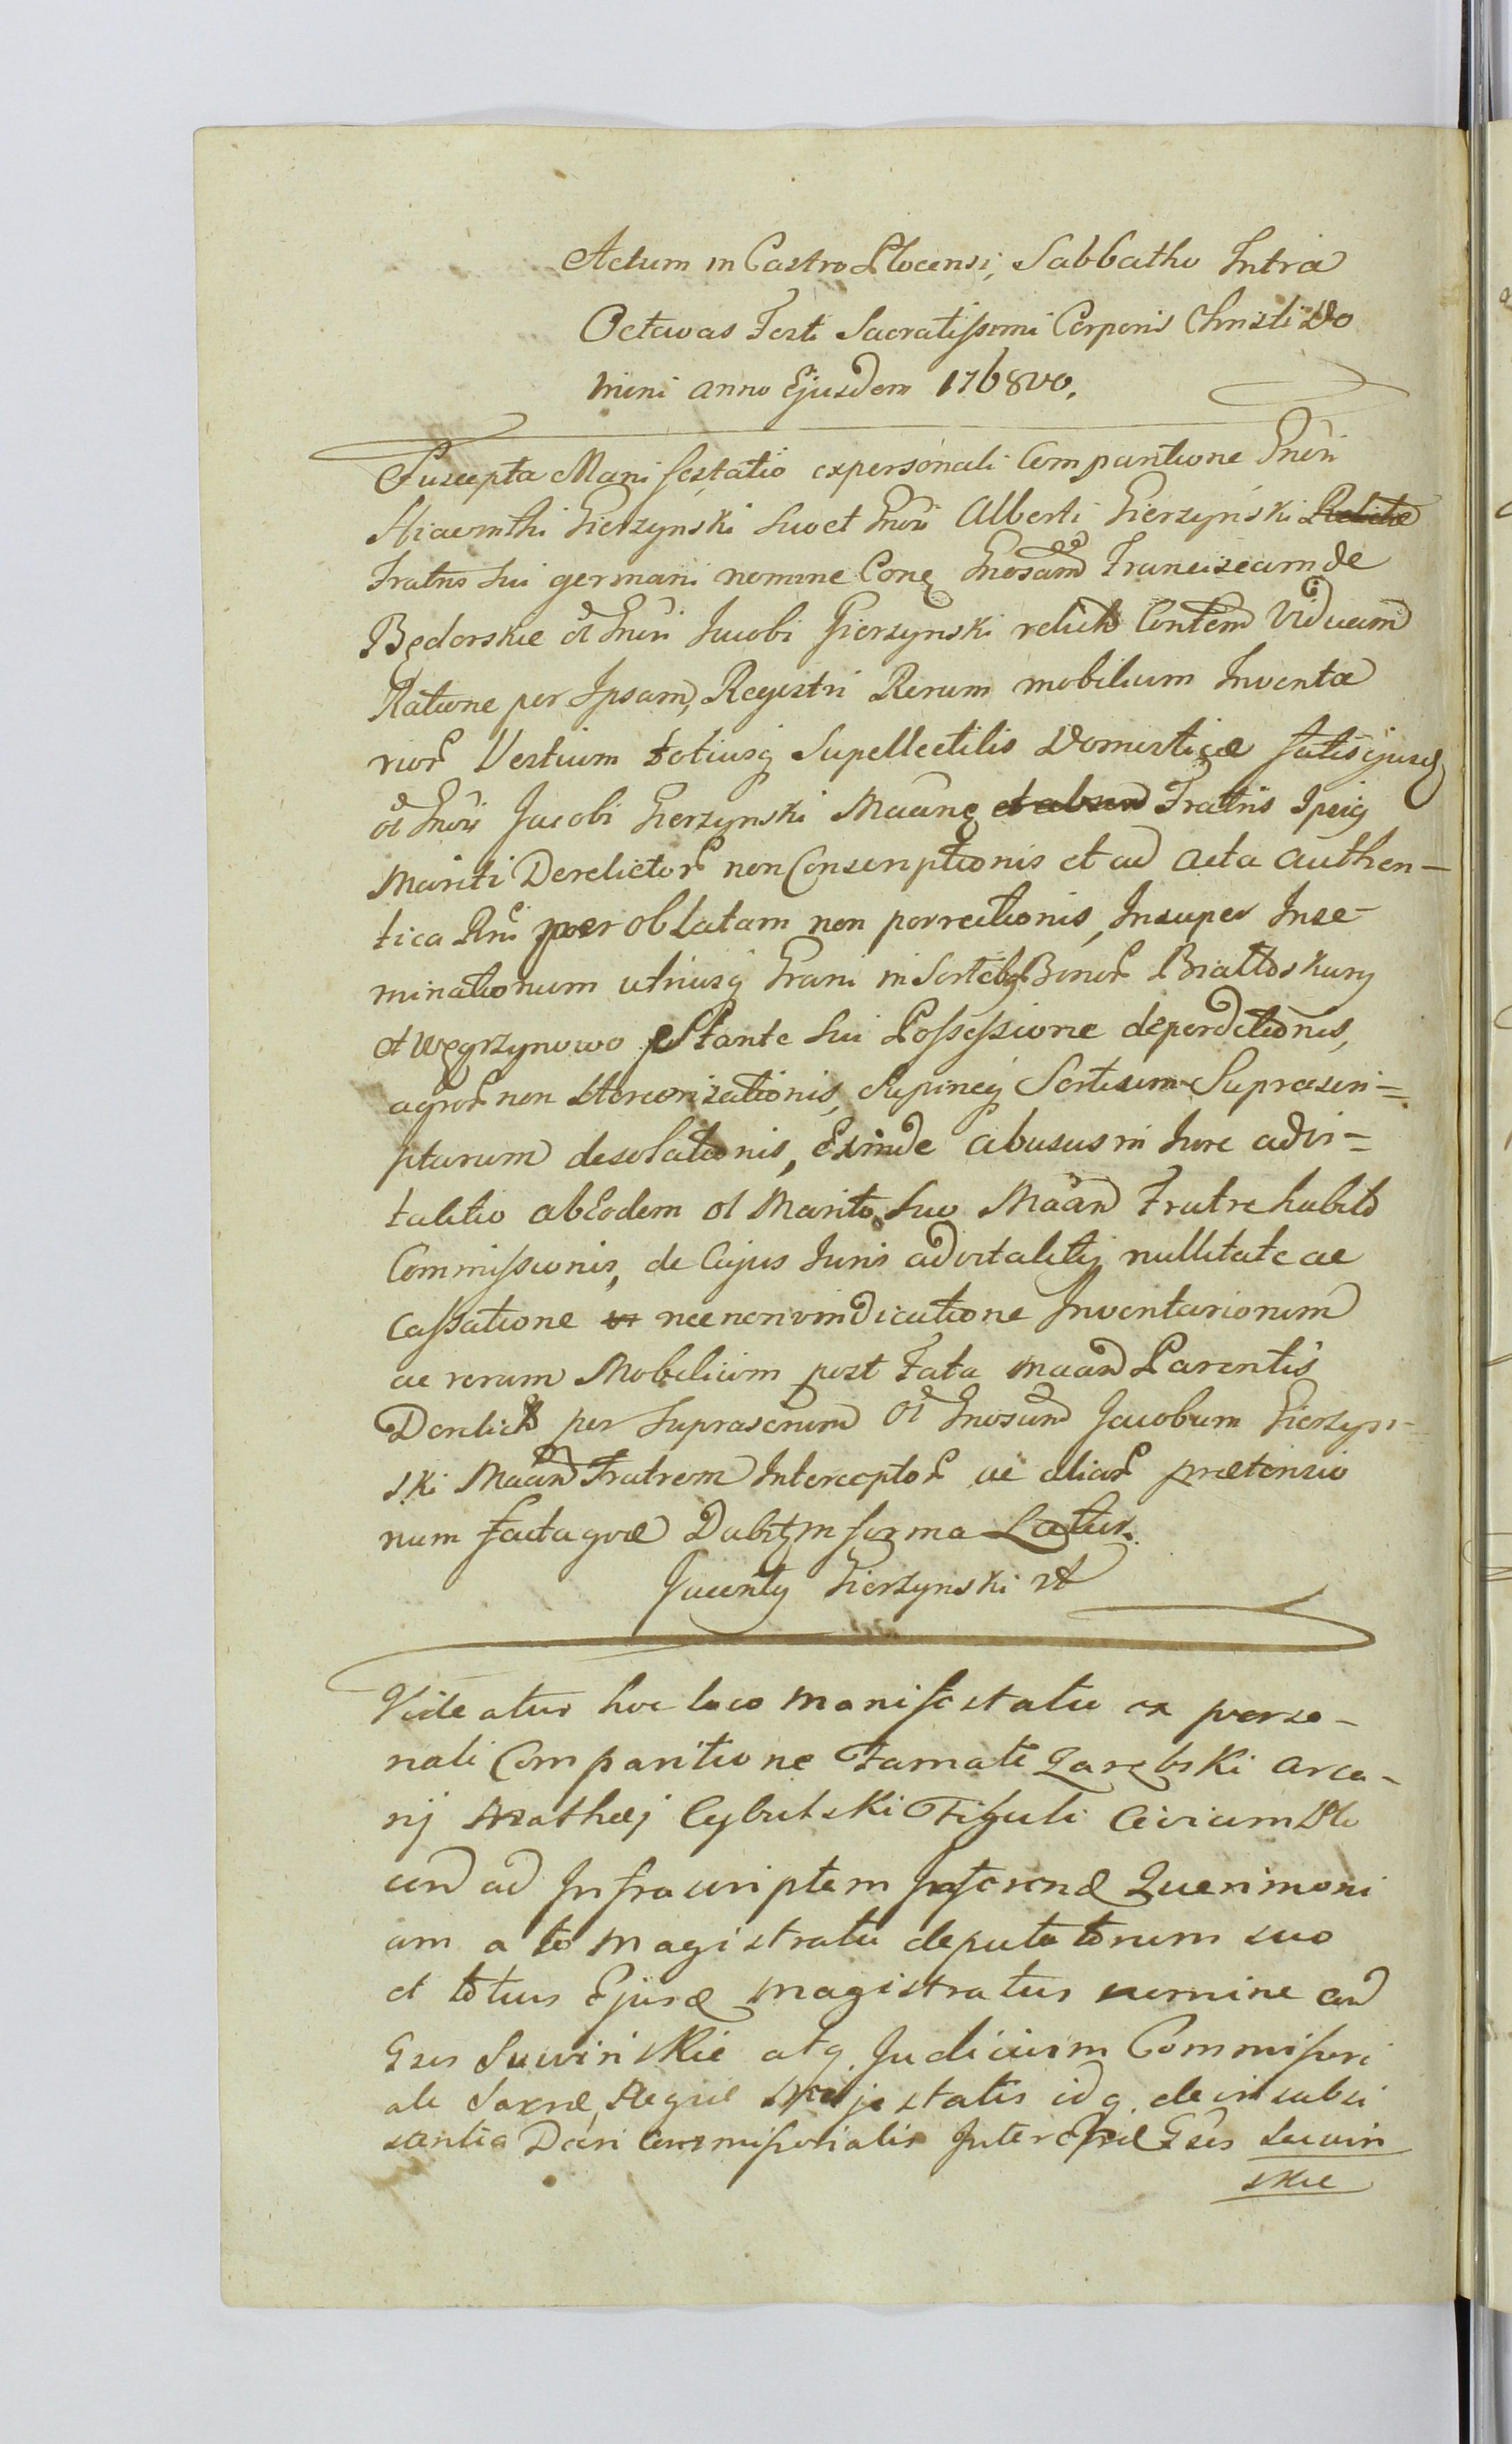 Actum in Castro Plocensi, Sabbatho Intra
Octavas Festi Sacratissimi Corporis Christi Do
mini anno Ejusdem 1768vo,
Suscepta Manifestatio ex personali Comparitione Gnõri
Hiacinthi Gierzynski Suo et Gnõri Alberti Gierzynski Relictæ
Fratris Sui germani nomine Conę Gnosam Franciscam de
Będorskie ol Gnõri Jacobi Gierzynski relictã Contem Viduam
Ratione per Ipsam, Registri Rerum mobilium Inventa
rior Vestium totiusq Supellectilis Domesticæ fatis ejusd
ol Gnõri Jacobi Gierzynski Maãnę Fratris Ipsiq
Mariti Derelictor non Conscriptionis et ad acta authen-
tica Rni per oblatam non porrectionis, Insuper Inse-
minationum utriusq Grani in Sortibq Bonor Brattoskury
et Węgrzynowo Stante Sui Possessione deperditionis,
agror non Stercorizationis, Supineq Sortium Suprascri=
ptarum desolationis, Exinde abusus in Jure advi=
talitio ab Eodem ol Marito Suo Maãn Fratre habito
Commissionis, de Cujus Juris advitalitij nullitate ac
Cassatione nec non vindicatione Inventariorum
ac rerum Mobilium post Fata maan Parentis
Derelict per Suprascrium Ol Gnosum Jacobum Gierzyn-
ski Maãn Fratrem Interceptor ac aliar prætensio
num facta quæ Dabit in forma Latius.
Jacenty Gierzynski
Videatur hoc loco manifestatio ex perso-
nali Comparitione Famati Zarębski arca-
rij Mathæj Cybulski Figuli Civium Plo
cen ad Infrascriptam Inferend Querimoni
am a to magistratu deputatorum suo
et totius Ejusd magistratus nomine con
Gsos Suwinskie atq Judicium Commissori
ale Sacræ Regiæ Majestatis idq. de insubsi
stentia Dcri Commissorialis Inter Gsos Suwin
skie